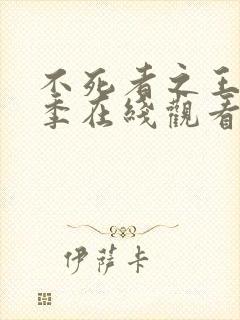 不死者之王
季在綫觀看
伊薩卡